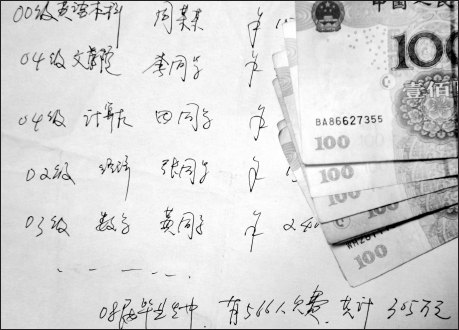 00级英语本科 周某某 ¥
04级 文学院 李同学 ¥
04级 计算机 田同学 ¥
02级 经济 张同学 ¥
03级 数学 黄同学 ¥ 240
08届毕业生中,有566人欠费,共计 305万元
中国人民
100
壹佰
BA86627355
100
100
100
100
100